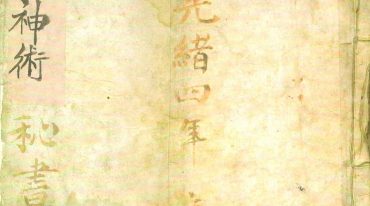 光緒四年
神術
秘書